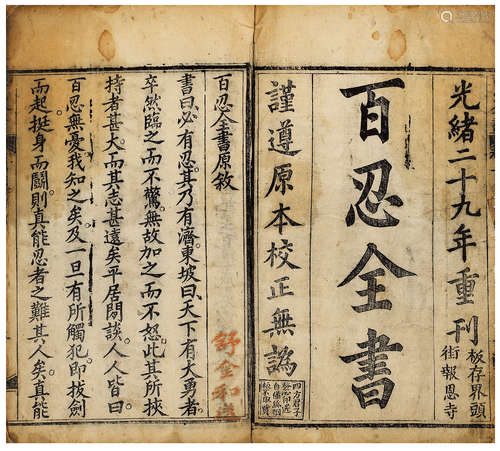 光緒二十九年重刊
板存界頭
街報恩寺
百忍全書
謹遵原本校正無譌
四方君子
發心印送
自備紙張
板不取賃
百忍全書原敘
書曰必有忍其乃有濟東坡曰天下有大勇者
卒然臨之而不驚無故加之而不怒此其所挾
持者甚大而其志甚遠矣平居閒談人人皆曰
百忍無憂我知之矣及一旦有所觸犯即拔劍
而起挺身而鬭則真能忍者之難其人矣真能
舒金和